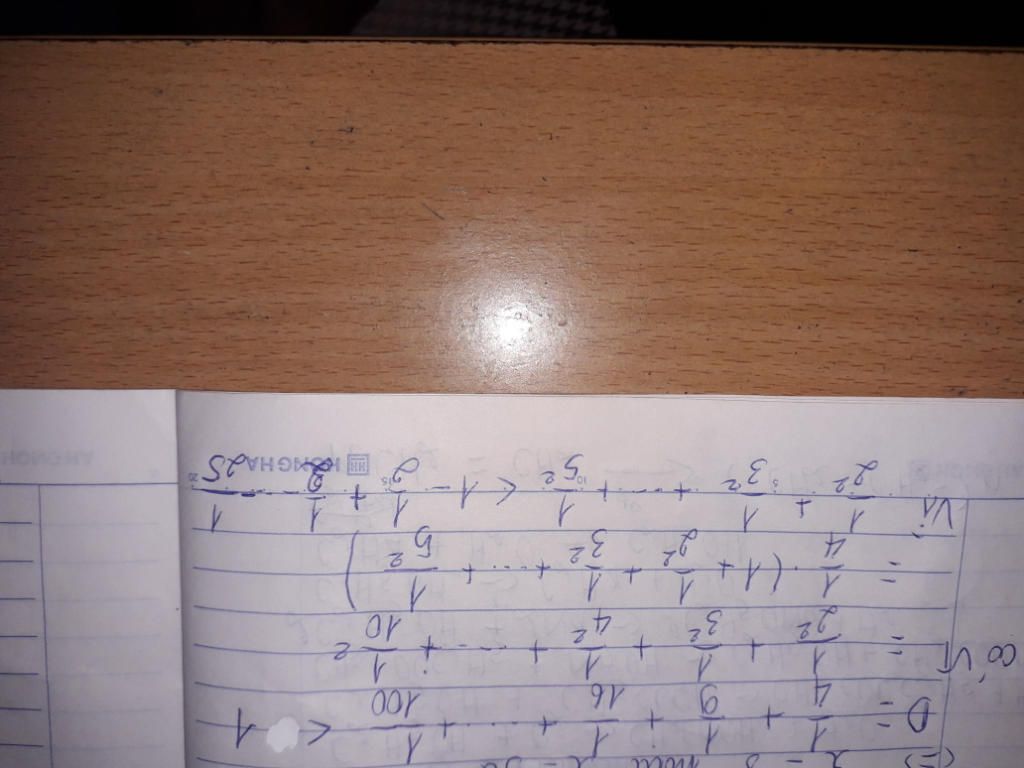 D = 1/4 + 1/9 + 1/16 + ..... + 1/100 < 1
Có = 1/2² + 1/3² + 1/4² + ..... + 1/10²
= 1/4 . (1 + 1/2² + 1/3² + ..... + 1/5²)
Vì 1/2² + 1/3² + ..... + 1/5² < 1 - 1/2 + 1/2 - ..... 1/25
HONG HA